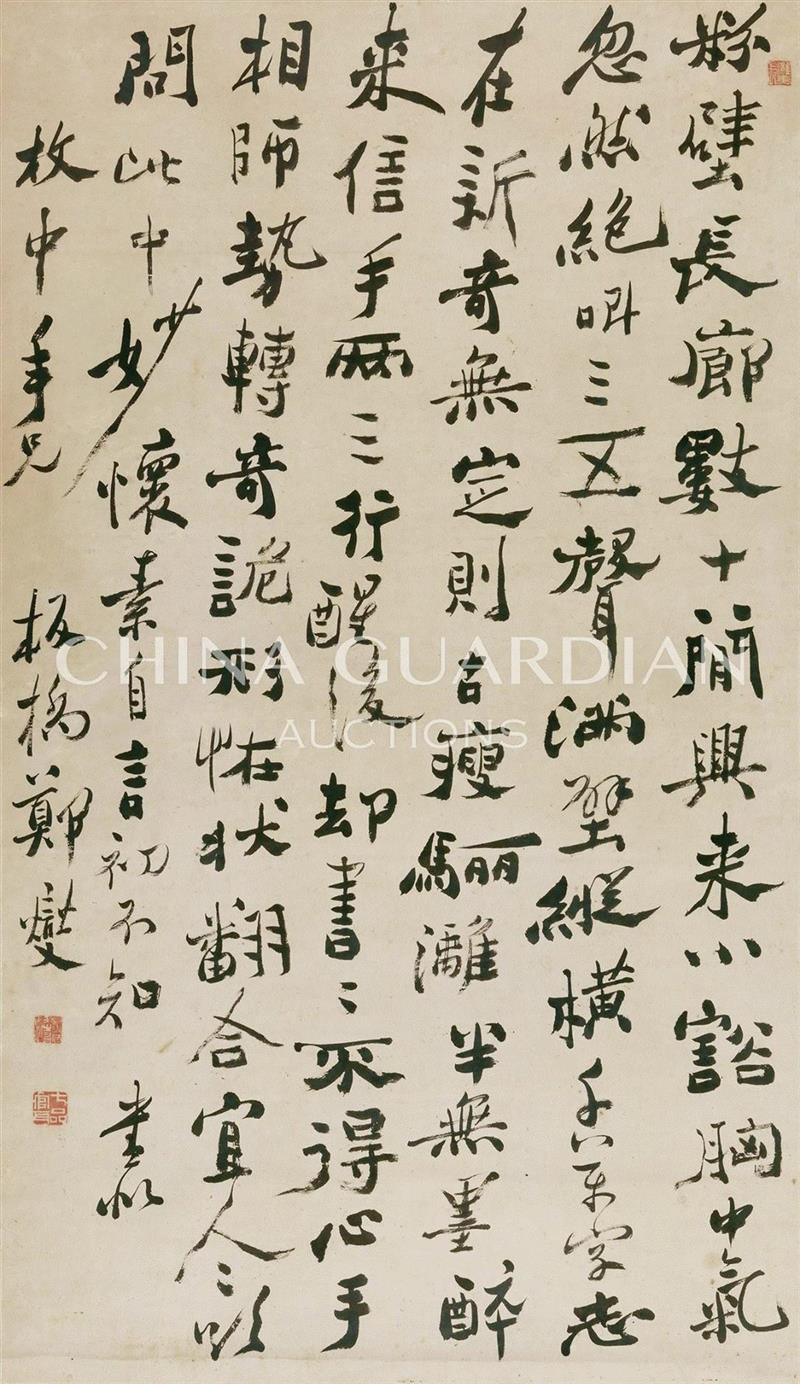 粉壁長廊數十間興来小豁胸中氣
忽然絕叫三五聲滿壁縱橫千万字志
在新奇無定則古瘦驪灕半無墨醉
来信手兩三行醒後却書〻不得心手
相師勢轉奇詭形怪状翻合宜人〻欲
問此中妙懷素自言初不知 書似
枚中年兄 板橋鄭燮
七品官耳
CHINA GUARDIAN
AUCTIONS